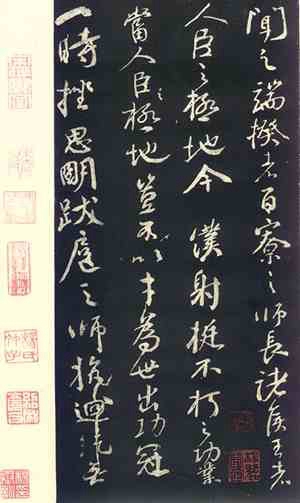 聞之端揆者百寮之師長諸侯王者
人臣之極地今 僕射挺不朽之功業
當人臣之極地豈不以才為世出功冠
一時挫思明跋扈之師抗迴紇無